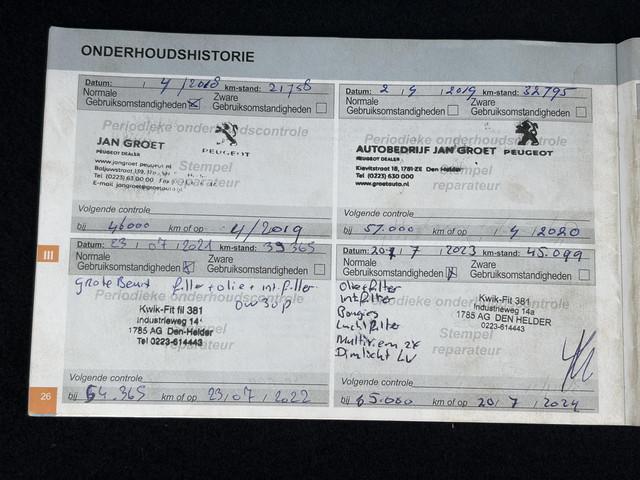 ONDERHOUDSHISTORIE
Datum: / 4 / 2018 km-stand:
Normale
Gebruiksomstandigheden
Zware
Gebruiksomstandigheden
Periodieke onderhoudscontrole
JAN GROET
PEUGEOT DEALER
PEUGEOT
www.jangroet.peugeot.nl
Tel (0223) 63 00 00
Stempel
reparateur
Volgende controle
bij 46000 km of op 4/2019
Datum: 2 / 4 / 2019 km-stand: 32795
Normale
Gebruiksomstandigheden
Zware
Gebruiksomstandigheden
Periodieke onderhoudscontrole
AUTOBEDRIJF JAN GROET
PEUGEOT DEALER
PEUGEOT
Kievitstraat 18, 1781-ZE Den Helder
Tel (0223) 630 000
www.groetauto.nl
Stempel
reparateur
Volgende controle
bij 57.000 km of op / 4 / 2020
III
Datum: 23 / 07 / 2021 km-stand: 39365
Normale
Gebruiksomstandigheden
Zware
Gebruiksomstandigheden
Grote Beurt filter + olie + int. filter
0W30P
Periodieke onderhoudscontrole
Kwik-Fit fil 381
Industrieweg 14a
1785 AG Den-Helder
Tel 0223-614443
Stempel
reparateur
Volgende controle
bij 54.365 km of op 23/07/2022
Datum: 20 / 7 / 2023 km-stand: 45.099
Normale
Gebruiksomstandigheden
Zware
Gebruiksomstandigheden
Oliefilter
Intfilter
Bougies
Luchtfilter
Multiriem 2x
LV
Periodieke onderhoudscontrole
Kwik-Fit 381
Industrieweg 14a
1785 AG DEN HELDER
0223-614443
Stempel
reparateur
Volgende controle
bij 65.000 km of op 20 / 7 / 2024
26